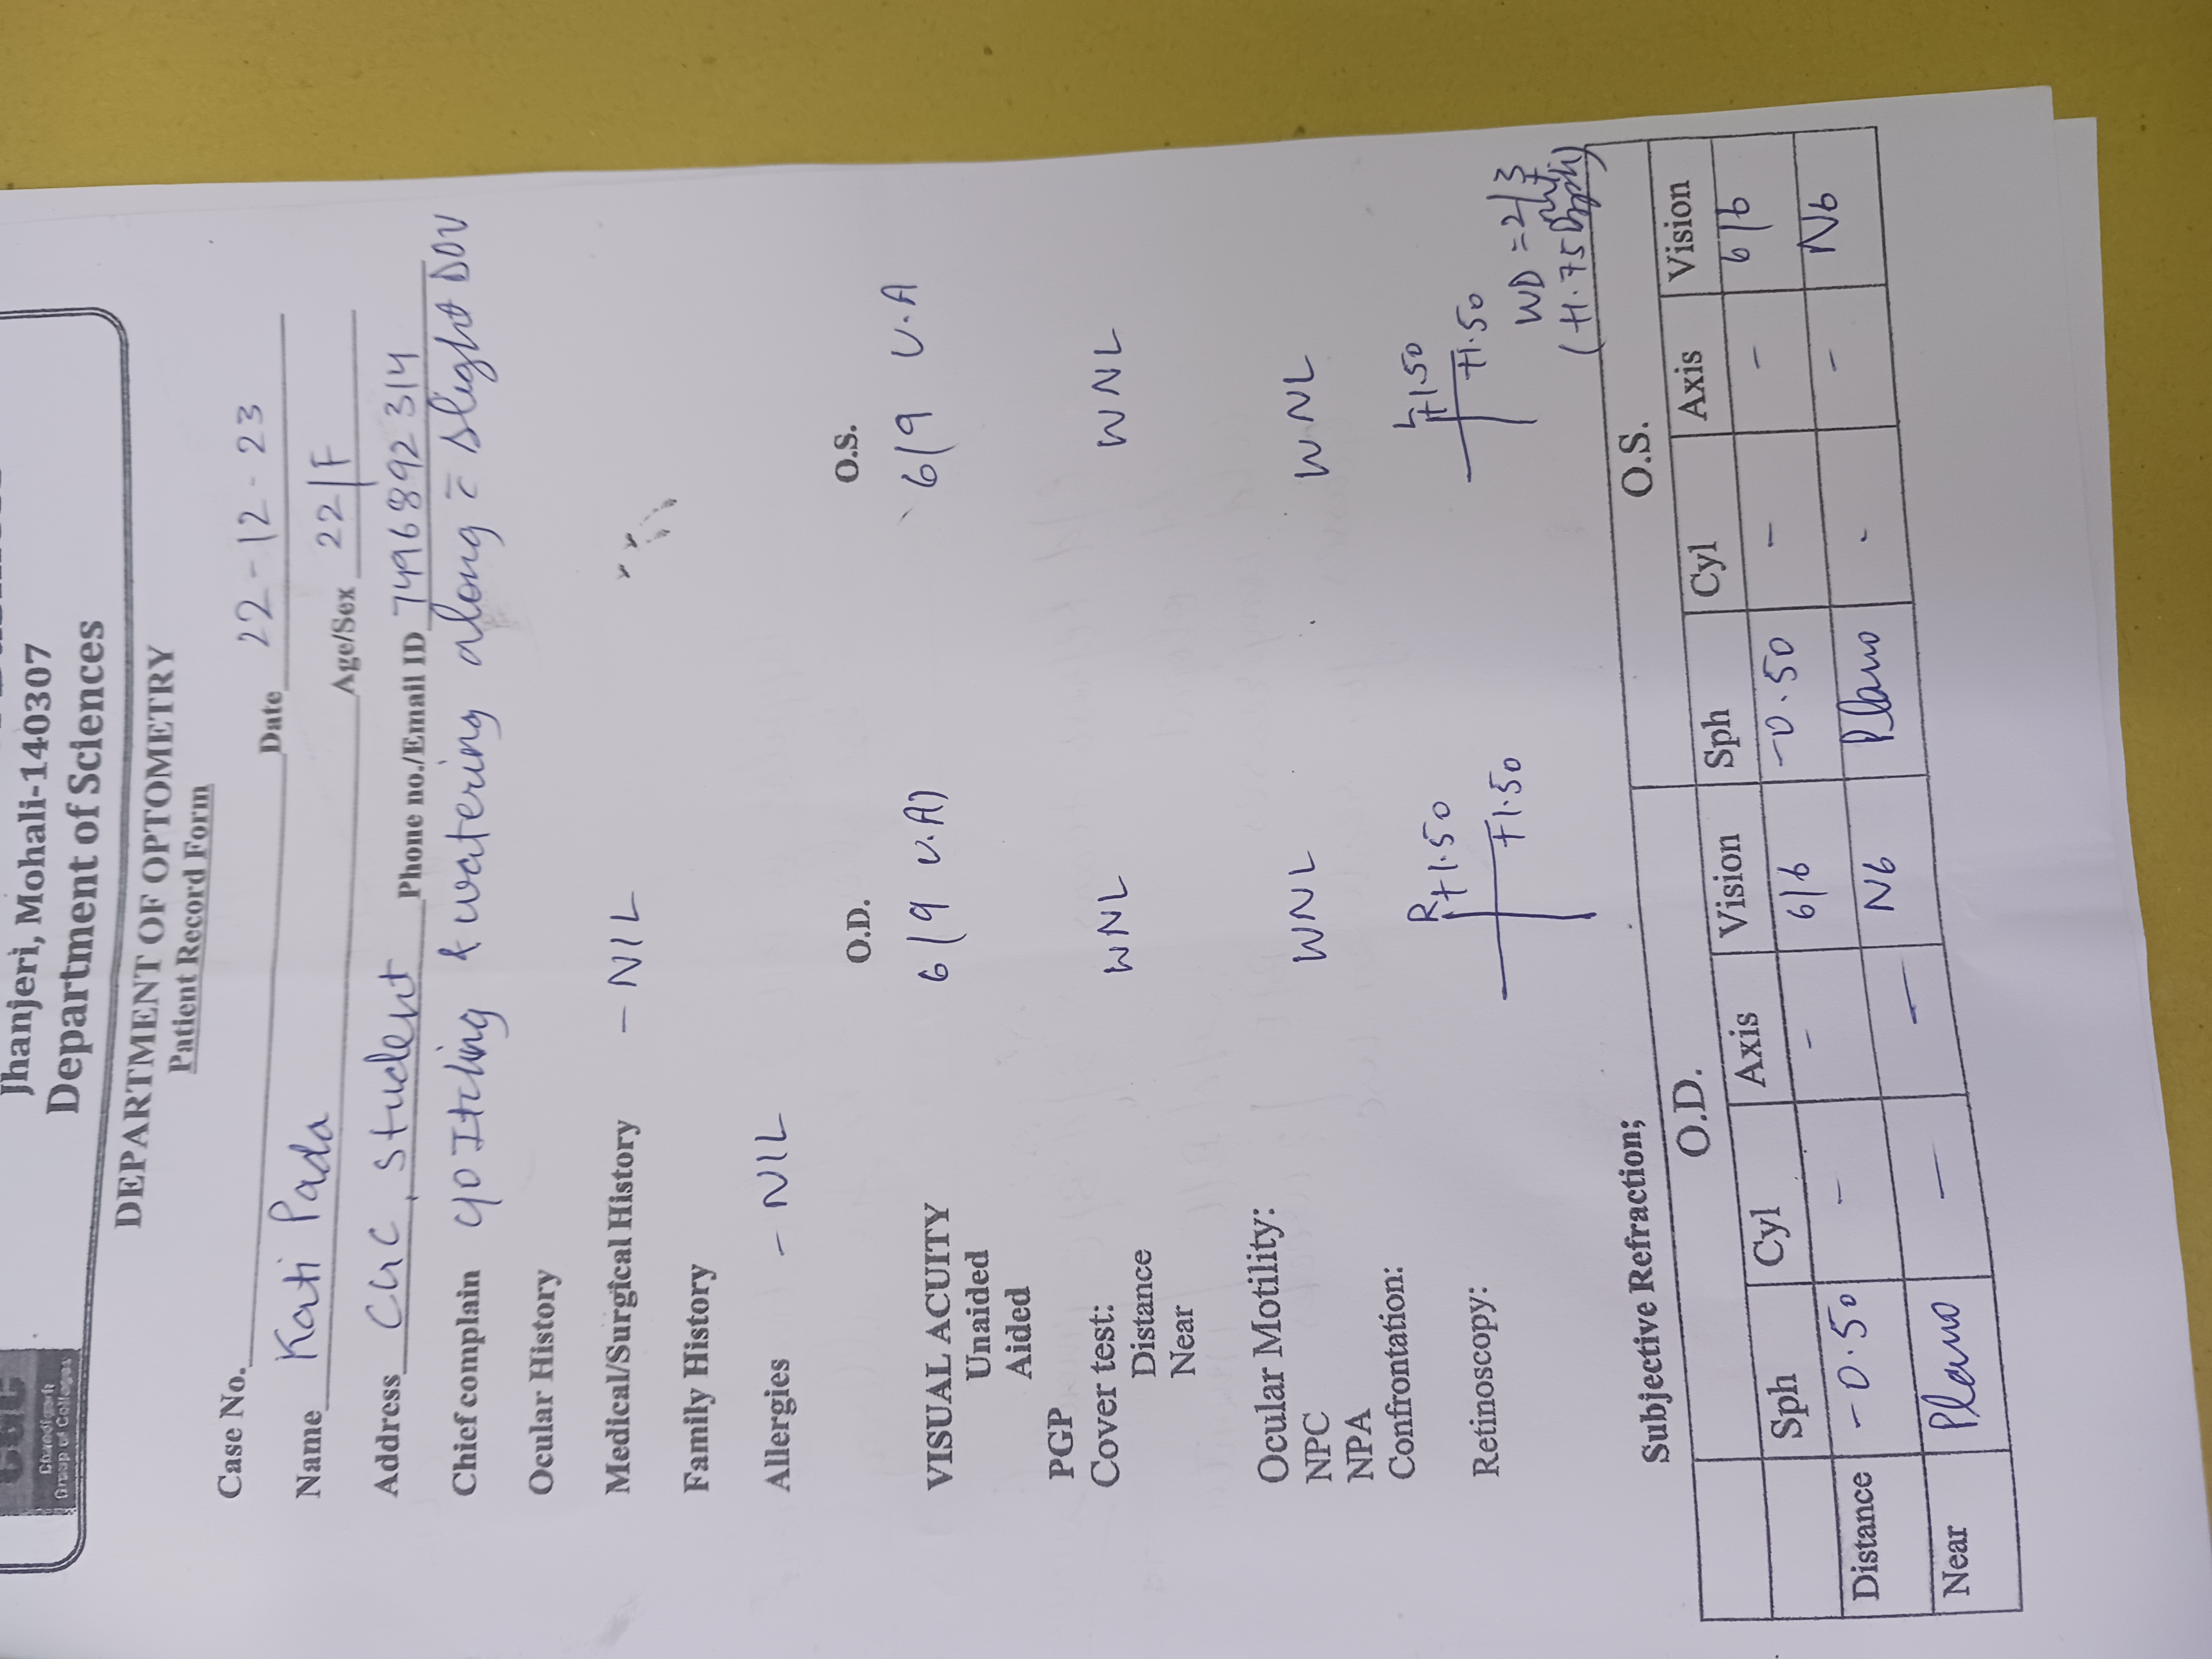 CGC
Chandigarh
Group of Colleges
Jhanjeri, Mohali-140307
Department of Sciences
DEPARTMENT OF OPTOMETRY
Patient Record Form
Case No.
Date 22-12-23
Name Kati Pada
Age/Sex 22/F
Address CGC, Student Phone no./Email ID 7496892314
Chief complain c/o Itching & watering along c̄ slight DOV
Ocular History
Medical/Surgical History - NIL
Family History
Allergies - NIL
O.D. O.S.
VISUAL ACUITY 6/9 U.A) 6/9 U.A
Unaided
Aided
PGP
Cover test: WNL WNL
Distance
Near
Ocular Motility:
NPC WNL WNL
NPA
Confrontation:
R +1.50 L +1.50
Retinoscopy: +1.50 +1.50
WD = 2/3
(+1.75
Subjective Refraction;
O.D. O.S.
Sph Cyl Axis Vision Sph Cyl Axis Vision
Distance -0.50 - - 6/6 -0.50 - - 6/6
Near Plano - - N6 Plano - - N6